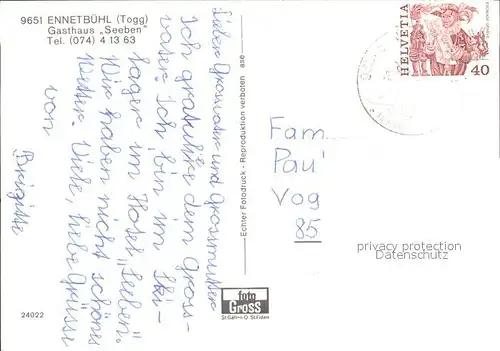 9651 ENNETBÜHL (Togg)
Gasthaus „Seeben"
Tel. (074) 4 13 63
Lieber Grossvater und Grossmutter
Ich gratuliere dem Gross-
vater. Ich bin im Ski-
lager im Hotel „Seeben".
Wir haben nicht schönes
Wetter. Viele, liebe Grüsse
von
Brigitte
24022
Echter Fotodruck - Reproduktion verboten
ase
foto
GROSS
St.Gallen O St.Fiden
HELVETIA
40
Fam.
Pau
Vog
85
privacy protection
Datenschutz